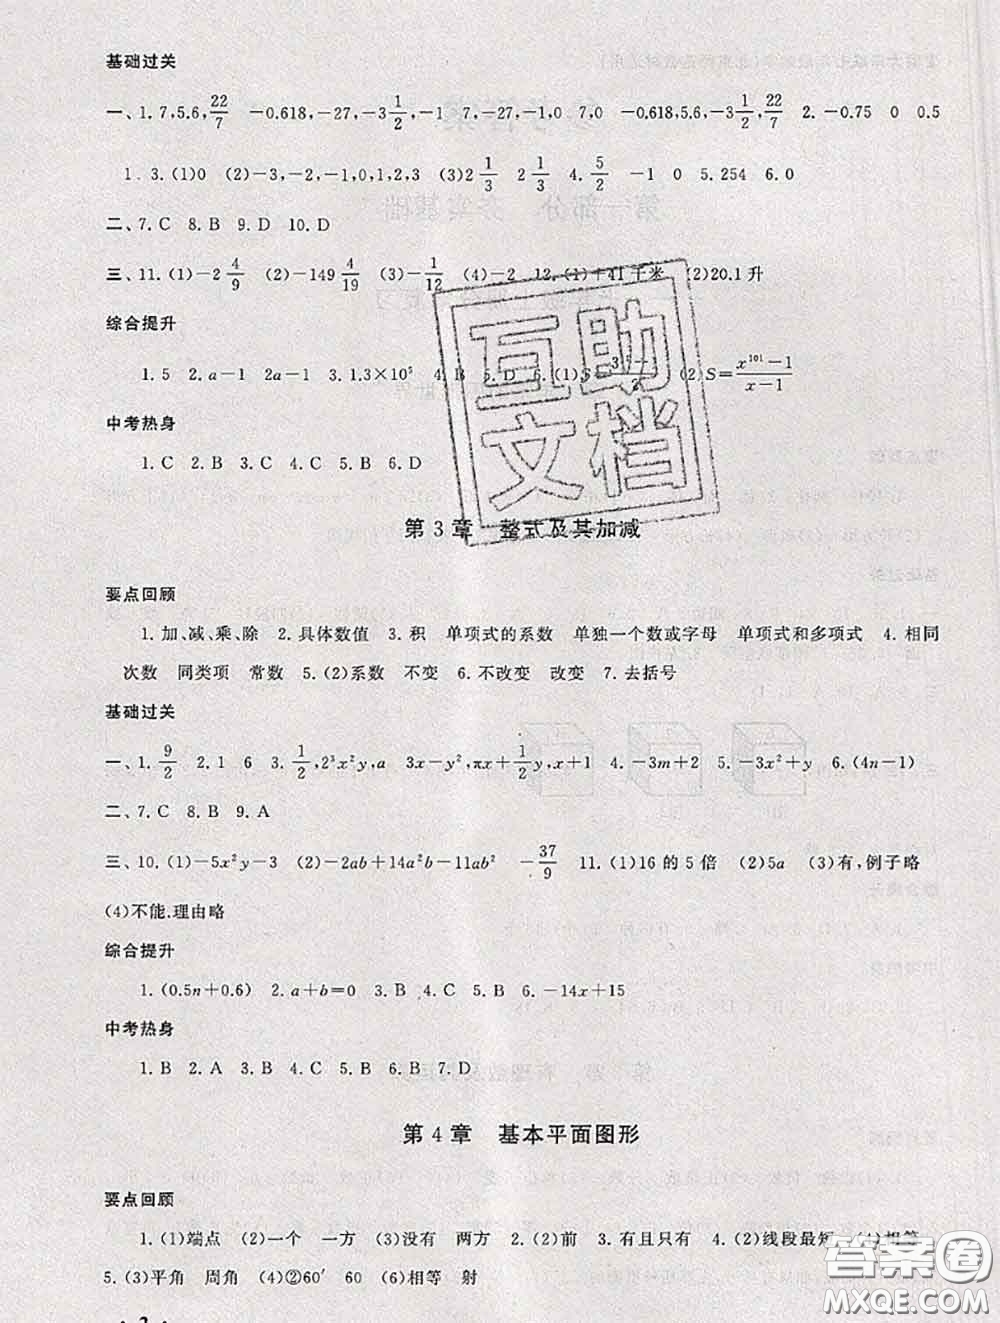 基础过关
一、1. 7,5.6,22/7  -0.618,-27,-3 1/2,-1  7,-27,-1,0  7  -0.618,5.6,-3 1/2,22/7  2. -0.75  0  0.5
1. 3.(1)0  (2)-3,-2,-1,0,1,2,3  (3)2 1/3  2 1/3  4. 5/2  -1  0  5.254  6.0
二、7. C  8. B  9. D  10. D
三、11.(1)-2 4/9  (2)-149 4/19  (3)-1/12  (4)-2  12.(1)+41千米  (2)20.1升
综合提升
1. 5  2. a-1  2a-1  3. 1.3×10⁵  4. B  5. D  6.(1)S=  (2)S=(x¹⁰¹-1)/(x-1)
中考热身
1. C  2. B  3. C  4. C  5. B  6. D
第3章  整式及其加减
要点回顾
1. 加、减、乘、除  2. 具体数值  3. 积  单项式的系数  单独一个数或字母  单项式和多项式  4. 相同
次数  同类项  常数  5.(2)系数  不变  6. 不改变  改变  7. 去括号
基础过关
一、1. 9/2  2. 1  6  3. 1/2,2³x²y,a  3x-y²,πx+1/2y,x+1  4. -3m+2  5. -3x²+y  6.(4n-1)
二、7. C  8. B  9. A
三、10.(1)-5x²y-3  (2)-2ab+14a²b-11ab²  -37/9  11.(1)16的5倍  (2)5a  (3)有,例子略
(4)不能.理由略
综合提升
1.(0.5n+0.6)  2. a+b=0  3. B  4. C  5. B  6. -14x+15
中考热身
1. B  2. A  3. B  4. C  5. B  6. B  7. D
第4章  基本平面图形
要点回顾
1.(1)端点  (2)一个  一方  (3)没有  两方  2.(2)前  3. 有且只有  4.(2)线段最短  (4)相等
5.(3)平角  周角  (4)②60′  60  (6)相等  射
· 2 ·
互助
文档
答案圈
MXQE.COM